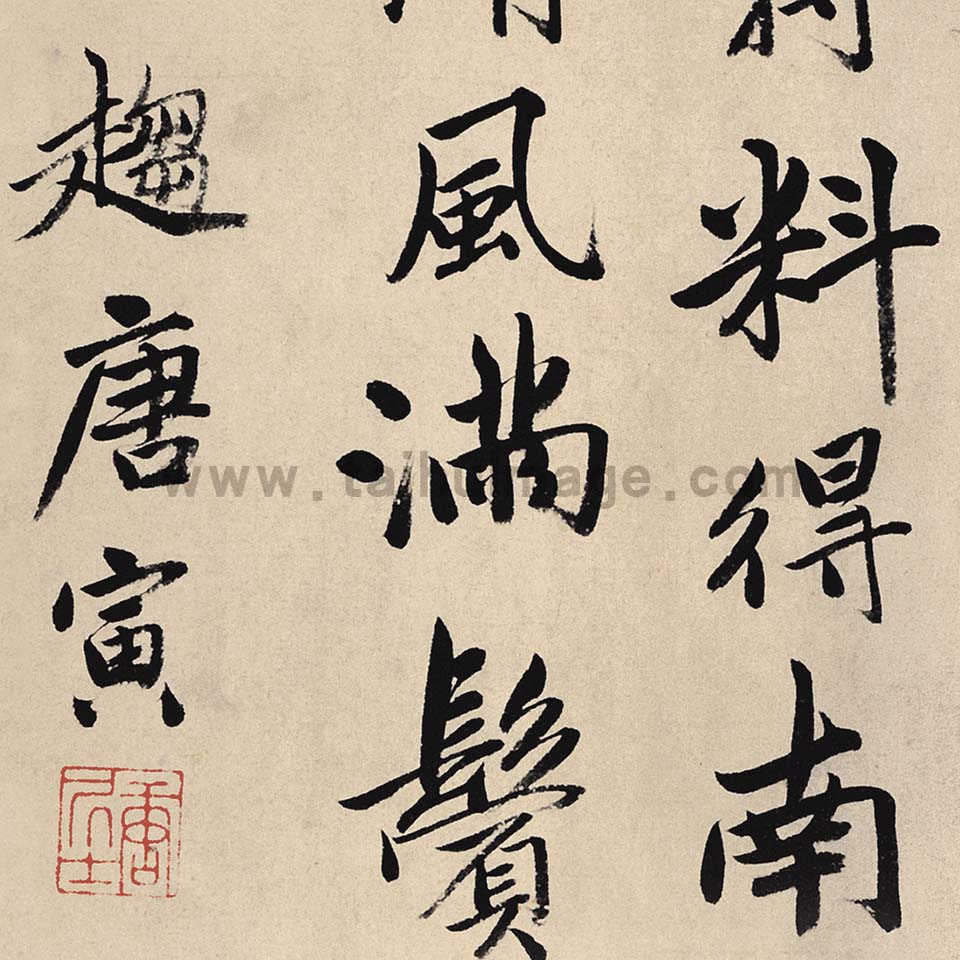 料得南
風滿鬢
趨唐寅
唐居士
www.taihuimage.com